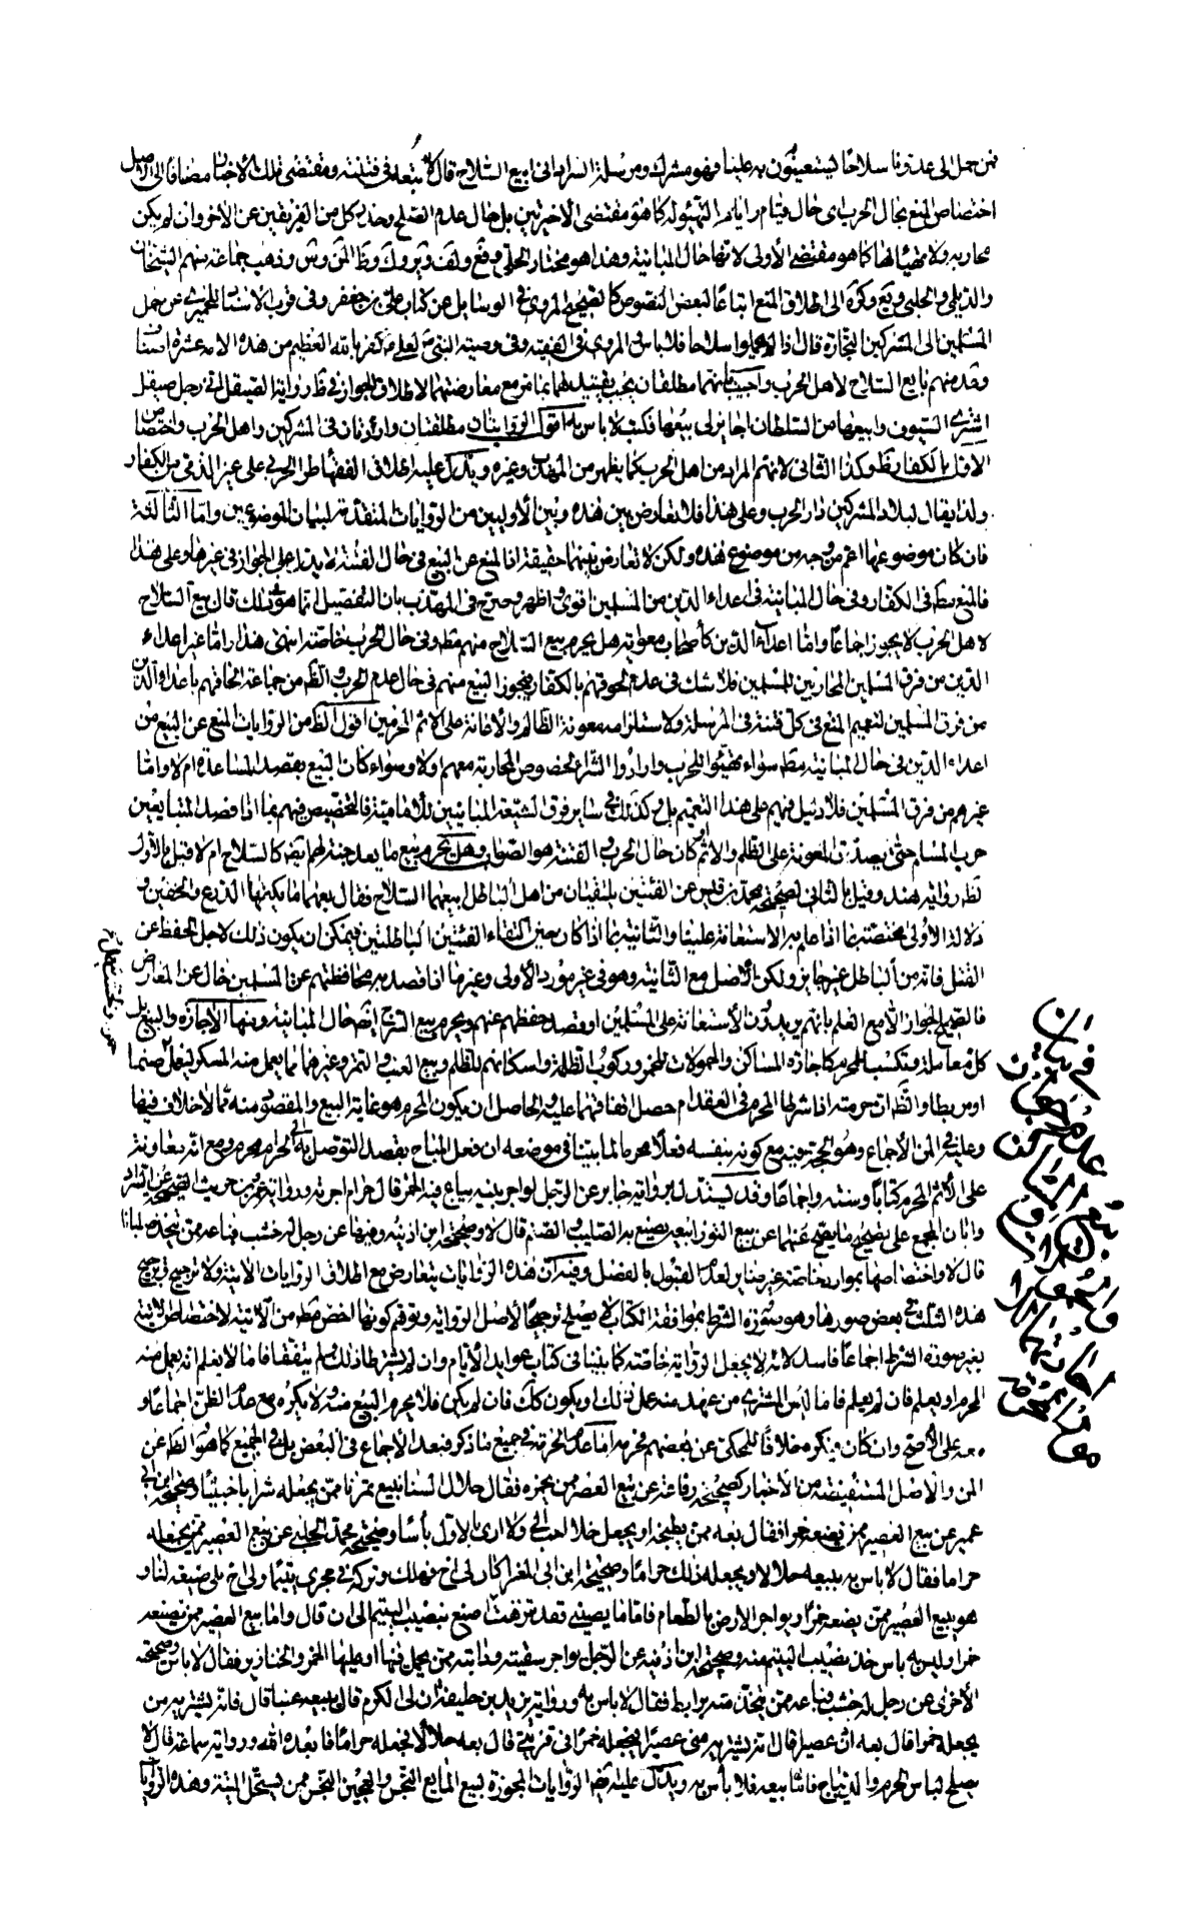 فمن حمل الى عدونا سلاحًا ليستعينون به علينا فهو مشرك ومرسلة السراد انى ابيع السلاح قال لا تبعه فى فتنة ومقتضى تلك الاخبار مضافا الى الاصل
اختصاص المنع بحال الحرب اى حال قيام او ايام التهيؤ له كما هو مقتضى الاخيرتين بل حال عدم الصلح وحذر كل من الفريقين عن الاخر وان لم يكن
محاربة ولا تهيأ لها كما هو مقتضى الأولى لانها حال المباينة وهذا هو مختار الحلى و وذهب جماعة منهم الشيخان
والديلمى والحلبى و الى اطلاق المنع اتباعًا لبعض النصوص كالصحيح المروى فى الوسايل عن كتاب على بن جعفر وفى قرب الاسناد للحميرى عن حمل
المسلمين الى المشركين التجارة قال اذا لم يحملوا سلاحا فلا باس والمروى فى الفقيه وفى وصية النبى لعلى كفر بالله العظيم من هذه الامة عشرة اصناف
وعد منهم بايع السلاح لاهل الحرب واجيب بانهما مطلقان يجب تقييدهما بما مر مع معارضتهما لاطلاق الجواز فى رواية الصيقل انى رجل صيقل
اشترى السيوف وابيعها من السلطان اجايز لى بيعها فكتب لا باس به اقول الروايتان مطلقتان واردتان فى المشركين واهل الحرب واختصاص
الاولى بالكفار ظ وكذا الثانى لانهم المراد من اهل الحرب كما يظهر من المهذب وغيره ويدل عليه اطلاق الفقهاء طرا الحربى على غير الذمى من الكفار
ولذا يقال لبلاد المشركين دار الحرب وعلى هذا فلا تعارض بين هذه وبين الأوليين من الروايات المتقدمة لتباين الموضوعين واما الثالثة
فان كان موضوعها اعم من وجه من موضوع هذه ولكن لا تعارض بينهما حقيقة اذ المنع عن البيع فى حال الفتنة لا يدل على الجواز فى غيرها وعلى هذا
فالمنع مط فى الكفار وفى حال المباينة فى اعداء الدين من المسلمين اقوى واظهر وصرح فى المهذب بان التفصيل انما هو فى ذلك قال بيع السلاح
لاهل الحرب لا يجوز اجماعًا واما اعداء الدين كأصحاب معوية هل يحرم بيع السلاح منهم مط او فى حال الحرب خاصة انتهى هذا واما غير اعداء
الدين من فرق المسلمين المحاربين للمسلمين فلا شك فى عدم لحوقهم بالكفار فيجوز البيع منهم فى حال عدم الحرب والظ من جماعة الحاقهم باعداء الدين
من فرق المسلمين لتعميم المنع فى كل فتنة فى المرسلة ولاستلزامه معونة الظالم والاعانة على الاثم المحرمين اقول الظ من الروايات المنع عن البيع من
اعداء الدين فى حال المباينة مط سواء تهيئوا للحرب وارادوا الشراء لخصوص المحاربة معهم اولا وسواء كان البيع بقصد المساعدة ام لا واما
غيرهم من فرق المسلمين فلا دليل فيهم على هذا التعميم بل وكذلك فى ساير فرق الشيعة المباينين للامامية فالتخصيص فيهم بما اذا قصد المتبايعين
حرب المسلم حتى يصدق المعونة على الظلم والاثم او كان حال الحرب والفتنة هو الصواب وهل يحرم بيع ما يعد جنة لهم ايضا كالسلاح ام لا قيل بالأول
لظ رواية هند وقيل بالثانى لصحيحة محمد بن قيس عن الفئتين يلتقيان من اهل الباطل ابيعهما السلاح فقال بعهما ما يكنهما الدرع والخفين و
دلالة الاولى مختصة بما اذا علم به الاستعانة علينا والثانية بما اذا كان حين التقاء الفئتين الباطلتين فيمكن ان يكون ذلك لاجل الحفظ عن
القتل فانه من الباطل غير جايز ولكن الأصل مع الثانية وهو فى غير مورد الأولى وغير ما اذا قصد به محافظتهم عن المسلمين خال عن المعارض
فالصحيح الجواز الا مع العلم بانهم يريدون الاستعانة على المسلمين او قصد حفظهم عنهم ويحرم بيع السرج ايضا حال المباينة ومنها الاجارة والبيع بل
كل معاملة وتكسب للمحرم كاجارة المساكن والحمولات للخمر وركوب الظلمة واسكانهم للظلم وبيع العنب والتمر وغيرهما مما يعمل منه المسكر ليعمل صنما
او بربطا والظ ان حرمته اذا شرط المحرم فى العقد ام حصل اتفاقهما عليه والحاصل ان يكون المحرم هو غاية البيع والمقصود منه مما لا خلاف فيها
وعليه فى المن الأجماع وهو الحجة فيه مع كونه بنفسه فعلًا محرما لما بيناه فى موضعه ان فعل المباح بقصد التوصل به الى الحرام محرم ومع انه معاونة
على الاثم المحرم كتابًا وسنة واجماعًا وقد يستدل برواية جابر عن الرجل يواجر بيته يباع فيه الخمر قال حرام اجرته ورواية عمرو بن حريث الصحيحة عن
وابان المجمع على تصحيح ما يصح عنهما عن بيع التوز ابيعه يصنع به الصليب والصنم قال لا وصحيحة ابن اذينه وفيها عن رجل له خشب فباعه ممن يتخذه صلبانا
قال لا واختصاصها بموارد خاصة غير ضاير لعدم القول بالفصل وفيه ان هذه الروايات يتعارض مع اطلاق الروايات الاتية ولا ترجيح فى ترجيح
هذه الثلث فى بعض صورها وهو صورة الشرط بموافقة الكتاب لا يصلح ترجيحًا لأصل الرواية وتوهم كونها اخص مط من الآتية لاختصاص الاتية
بغير صورة الشرط اجماعًا فاسد لانه لا يجعل الرواية خاصة كما بينا فى كتاب عوايد الأيام وان لم يشترط ذلك ولم يتفقا فاما لا يعلم انه يعمل منه
المحرم او يعلم فان لم يعلم فاما ليس المشترى من عهد منه عمل ذلك او يكون كك فان لم يكن فلا يحرم البيع منه ولا يكره مع عدم الظن اجماعًا و
معه على الأصح وان كان فيكره خلافًا للمحكى عن بعضهم فحرمه اما عدم الحرمة فى جميع ما ذكر فبعد الاجماع فى البعض بل فى الجميع كما هو الظ عن
المن والاصل المستفيضة من الأخبار كصحيحة رفاعة عن بيع العصير ممن يخمره فقال حلال السنا نبيع تمرنا ممن يجعله شرابا خبيثًا وصحيحة ابن ابى
عمير عن بيع العصير ممن يصنعه خمرا فقال بعه ممن يطبخه او يجعله خلا احب الى ولا ارى بالاول بأسًا وصحيحة محمد الحلبى عن بيع العصير ممن يجعله
حراما فقال لا باس به يبيعه حلالا ويجعله ذلك حرامًا وصحيحة ابن ابى المغرا كان لى اخ فهلك وترك فى حجرى يتيمًا ولى اخ يلى ضيعة لنا و
هو يبيع العصير ممن يصنعه خمرًا ويواجر الارض بالطعام فاما ما يصيبنى فقد تنزهت فكيف اصنع بنصيب اليتيم الى ان قال واما بيع العصير ممن يصنعه
خمرا وليس به باس خذ نصيب اليتيم منه وصحيحة ابن اذينه عن الرجل يواجر سفينته ودابته ممن يحمل فيها او عليها الخمر والخنازير فقال لا باس وصحيحته
الأخرى عن رجل له خشب فباعه ممن يتخذ منه برابط فقال لا باس به ورواية يزيد بن خليفة ان لى الكرم قال يبيعه عنبا قال فانه يشتريه من
يجعله خمرا قال بعه اذن عصيرا قال انه يشتريه منى عصيرا فيجعله خمرًا فى قربتى قال بعه حلالًا يجعله حرامًا فابعده الله ورواية سماعة قال لا
يصلح لباس الحرير والديباج فاما بيعه فلا بأس به ويدل عليه ايضا الروايات المجوزة لبيع المايع النجس والعجين النجس ممن يستحل الميتة وهذه الروايا
فى بيان
عدم جواز
بيع
المساكن